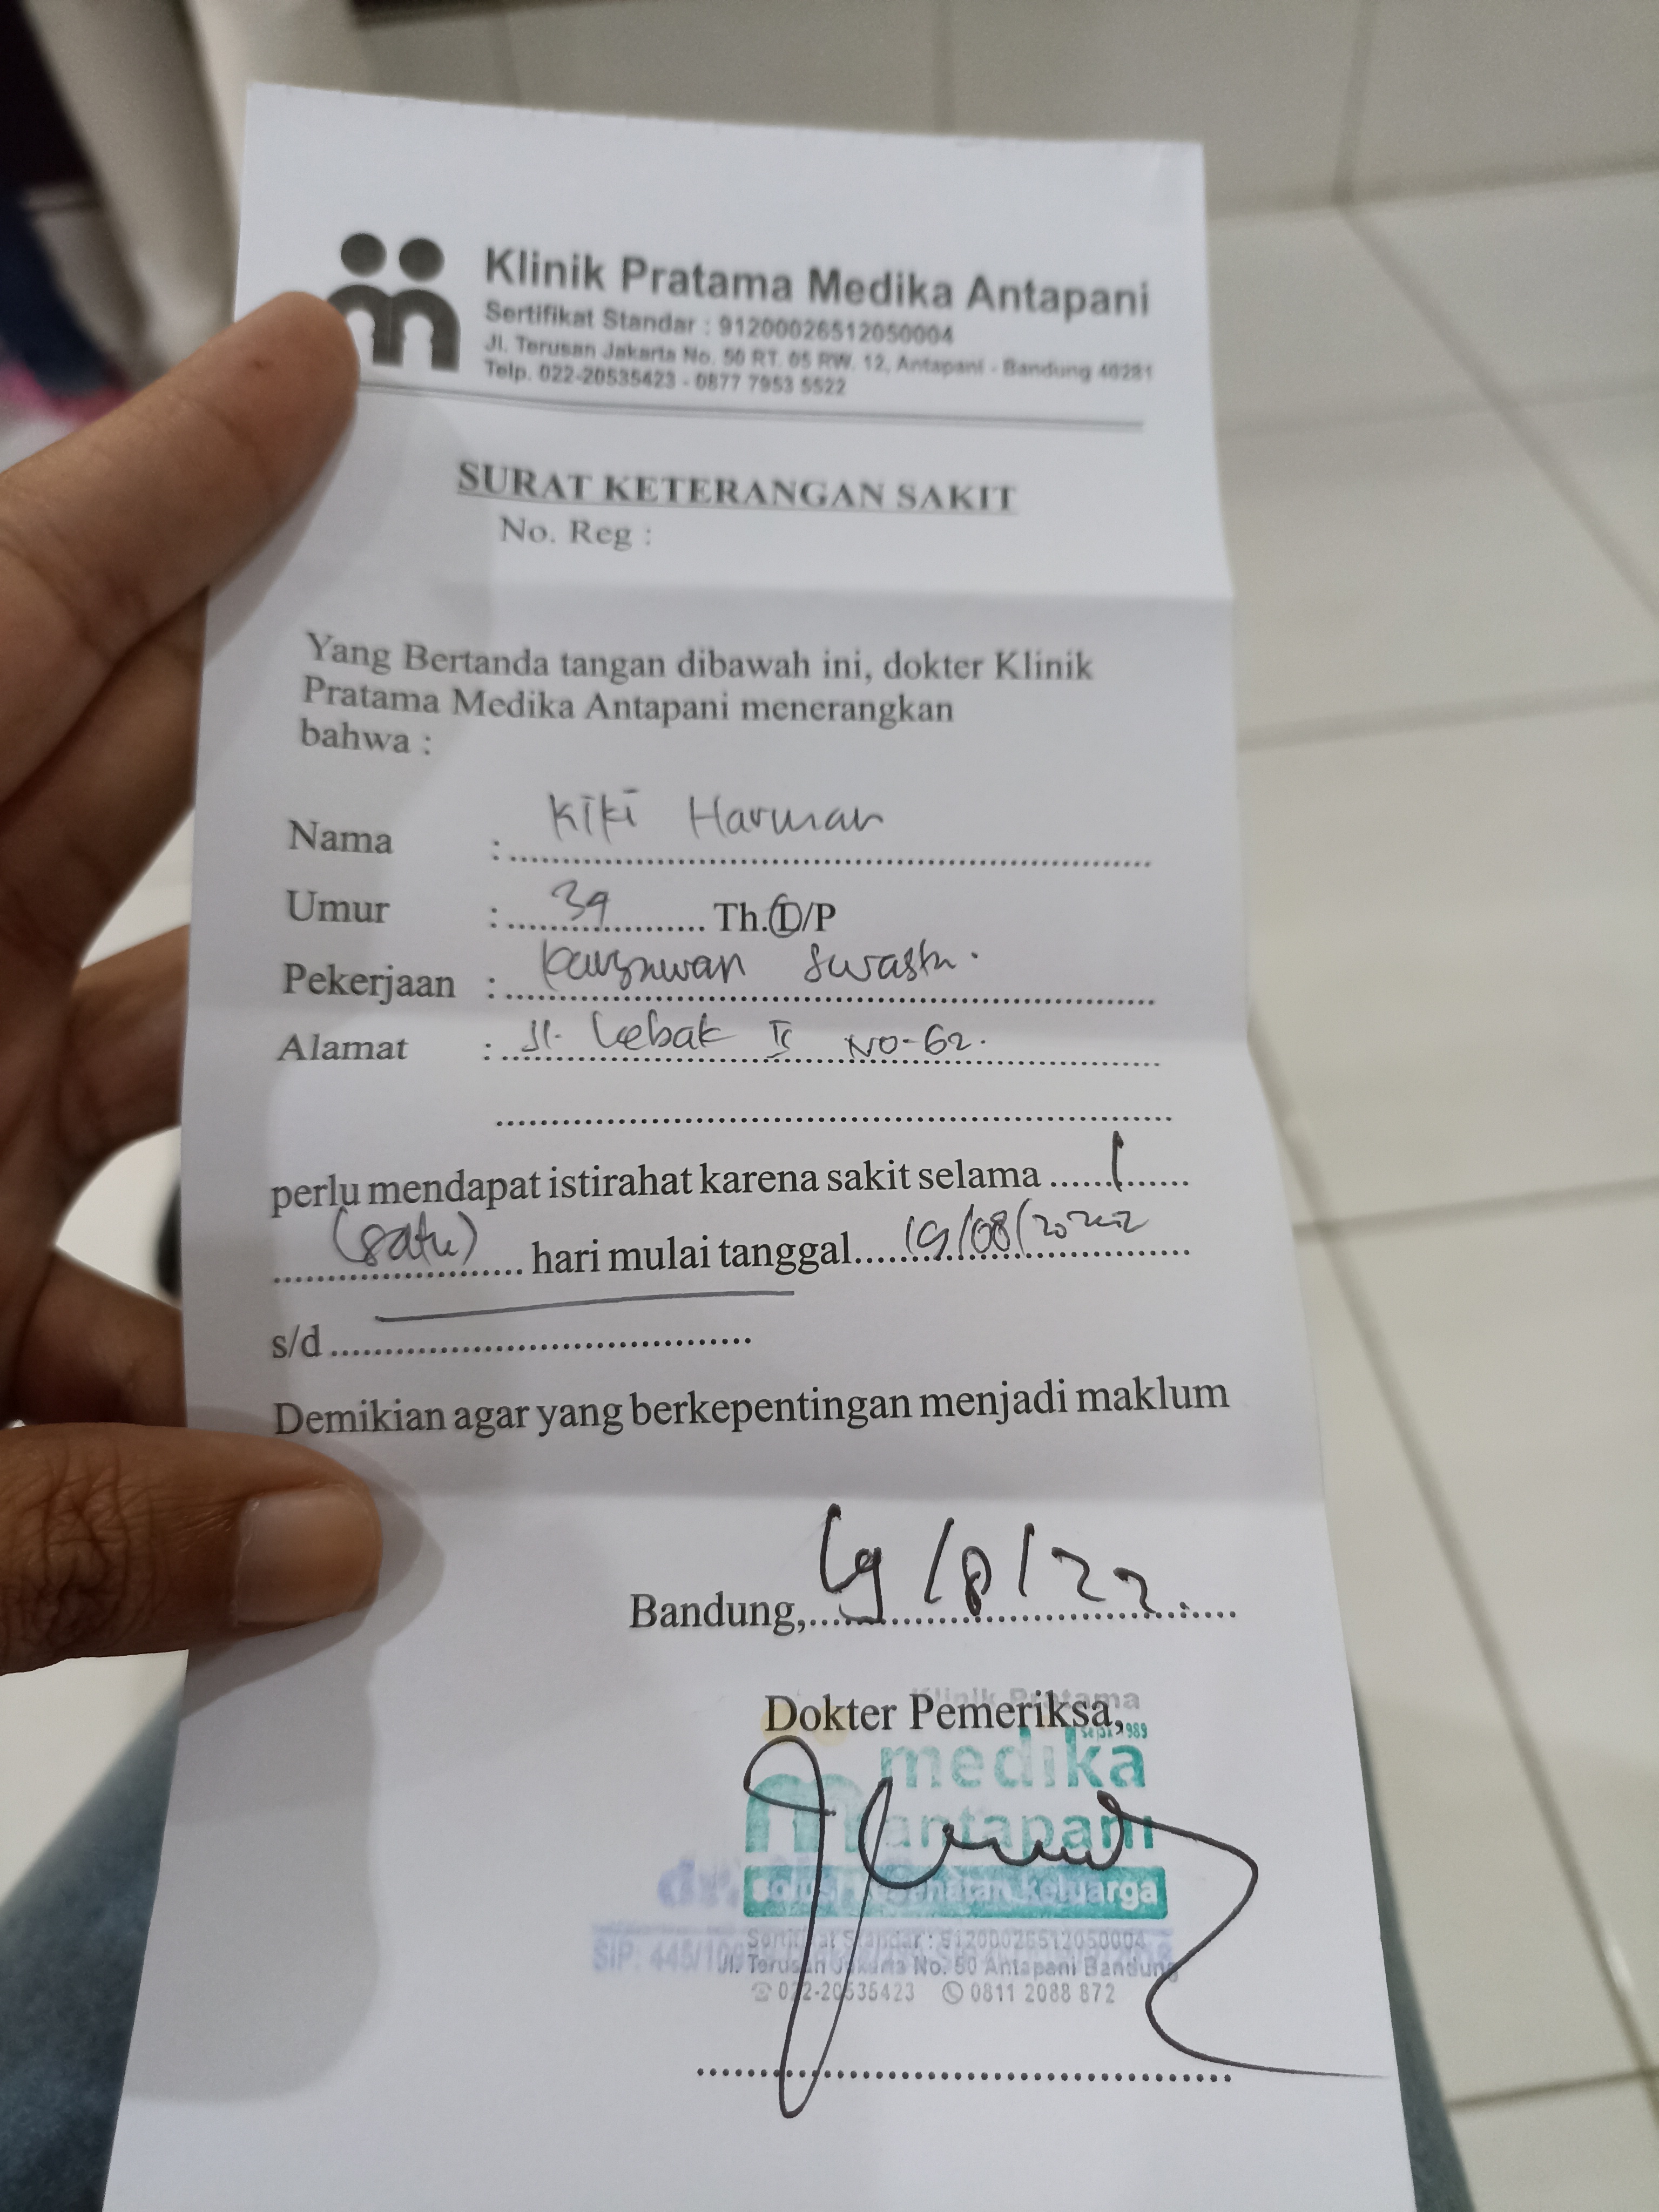 Klinik Pratama Medika Antapani
Sertifikat Standar : 91200026512050004
Jl. Terusan Jakarta No. 50 RT. 05 RW. 12, Antapani - Bandung 40281
Telp. 022-20535423 - 0877 7953 5522
SURAT KETERANGAN SAKIT
No. Reg :
Yang Bertanda tangan dibawah ini, dokter Klinik
Pratama Medika Antapani menerangkan
bahwa :
Nama : Kiki Harman
Umur : 39 Th.L/P
Pekerjaan : karyawan swasta.
Alamat : Jl. Lebak II No-62.
perlu mendapat istirahat karena sakit selama 1
(satu) hari mulai tanggal 19/08/2022
s/d
Demikian agar yang berkepentingan menjadi maklum
Bandung, 19/8/22.
Dokter Pemeriksa,
Klinik Pratama
1989
medika
antapani
solusi kesehatan keluarga
dr.
Sertifikat Standar : 91200026512050004
SIP: 445/
Jl. Terusan Jakarta No. 50 Antapani Bandung
022-20535423 0811 2088 872